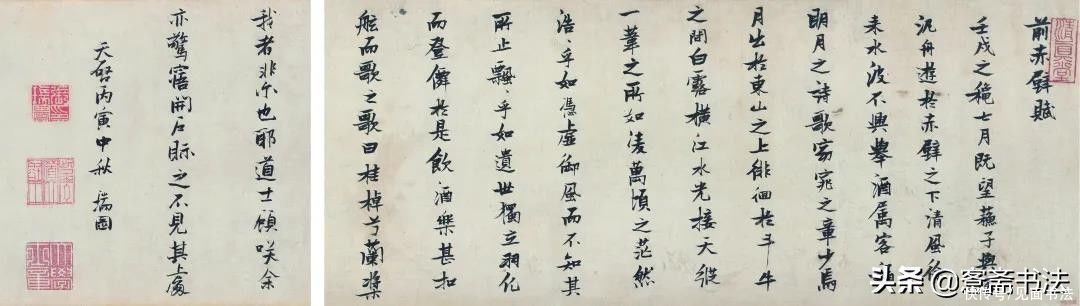 前赤壁賦
壬戌之穐七月既望蘇子與
汎舟遊於赤壁之下清風徐
来水波不興舉酒属客誦
明月之詩歌窈窕之章少焉
月出於東山之上徘徊於斗牛
之間白露橫江水光接天縱
一葦之所如淩萬頃之茫然
浩〻乎如馮虛御風而不知其
所止飄〻乎如遺世獨立羽化
而登僊於是飲酒樂甚扣
舷而歌之歌曰桂棹兮蘭槳
我者非尓也耶道士顧咲余
亦驚寤開戶眎之不見其處
天啓丙寅中秋 瑞圖
清真堂
头条 斋书法
快传号/见面书法